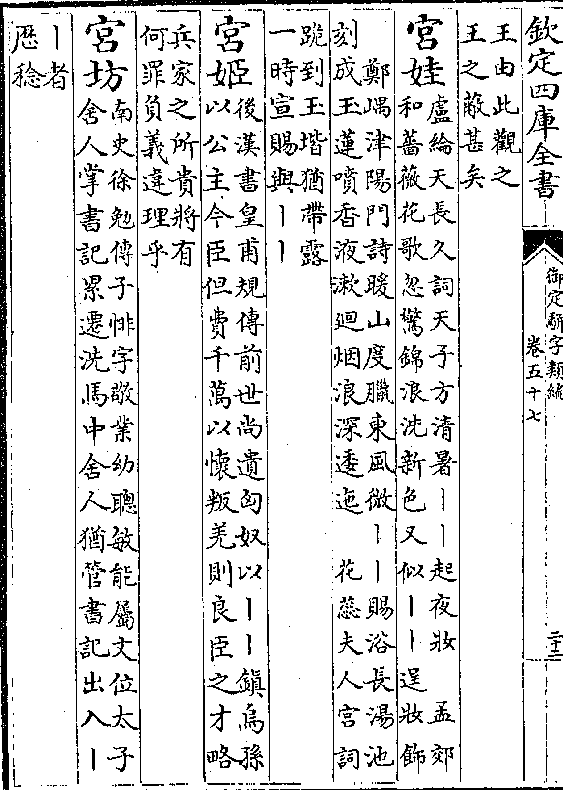 欽定四庫全書
御定駢字類編
卷五十七
二十二
王由此觀之
王之蔽甚矣
宮娃
盧綸天長久詞天子方清暑丨丨起夜妝 孟郊
和薔薇花歌忽驚錦浪洗新色又似丨丨逞妝飾
鄭嵎津陽門詩暖山度臘東風微丨丨賜浴長湯池
刻成玉蓮噴香液漱迴烟浪深逶迤 花蕊夫人宮詞
跪到玉堦猶帶露
一時宣賜與丨丨
宮姬
後漢書皇甫規傳前世尚遺匈奴以丨丨鎮烏孫
以公主今臣但費千萬以懷叛羌則良臣之才略
兵家之所貴將有
何罪負義違理乎
宮坊
南史徐勉傳子悱字敬業幼聰敏能屬文位太子
舍人掌書記累遷洗馬中舍人猶管書記出入丨
丨者
歷稔